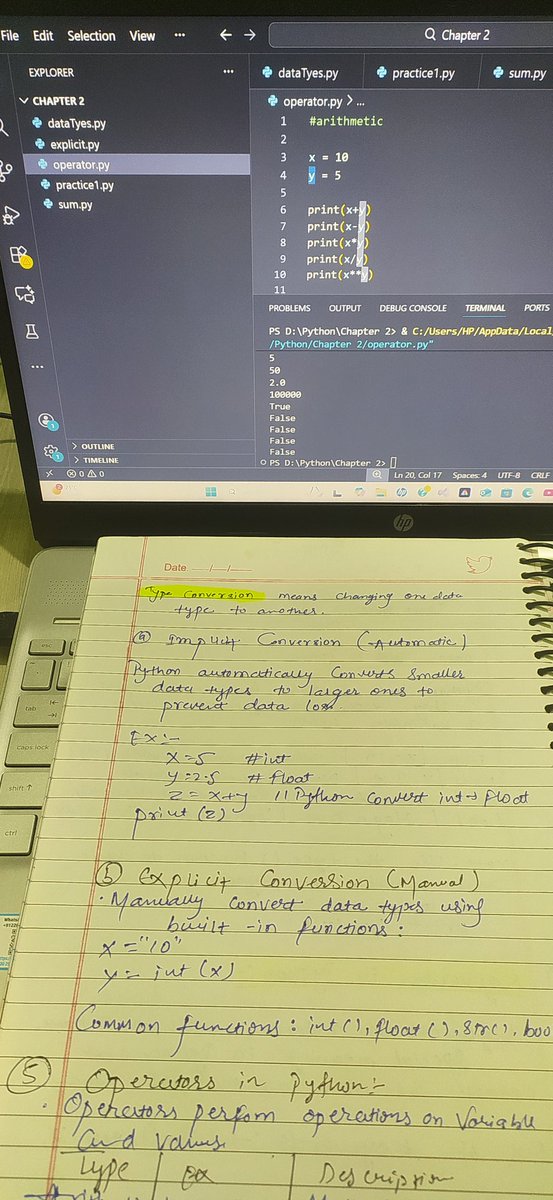 File Edit Selection View ... ← → Chapter 2
EXPLORER ...
CHAPTER 2
dataTyes.py
explicit.py
operator.py
practice1.py
sum.py
OUTLINE
TIMELINE
dataTyes.py practice1.py sum.py
operator.py > ...
1 #arithmetic
2
3 x = 10
4 y = 5
5
6 print(x+y)
7 print(x-y)
8 print(x*y)
9 print(x/y)
10 print(x**y)
11
PROBLEMS OUTPUT DEBUG CONSOLE TERMINAL PORTS
PS D:\Python\Chapter 2> & C:/Users/HP/AppData/Local/
/Python/Chapter 2/operator.py"
5
50
2.0
100000
True
False
False
False
False
PS D:\Python\Chapter 2>
0 0 Ln 20, Col 17 Spaces: 4 UTF-8 CRLF
hp
esc
tab
caps lock
shift
ctrl
Date
Type Conversion means changing one data
type to another.
(a) Implicit Conversion (Automatic)
Python automatically Converts smaller
data types to larger ones to
prevent data loss.
Ex:-
x=5 #int
y=2.5 # float
z = x+y // Python Convert int→float
print (z)
(b) Explicit Conversion (Manual)
· Manually convert data types using
built-in functions:
x="10"
y= int (x)
Common functions: int(), float(), str(), boo
(5) Operators in Python:-
· Operators perfom operations on Variable
and values
Type Ex Description